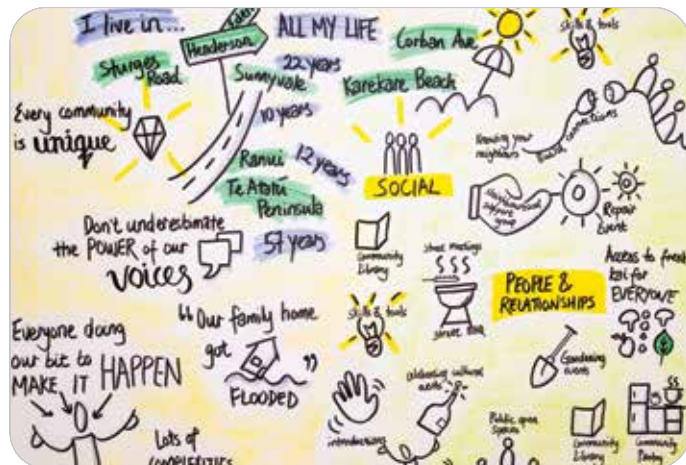 I live in...
Henderson
ALL MY LIFE
22 years
Corban Ave
Skills & tools
Sturges
Road
Sunnyvale
Karekare Beach
10 years
Every community
is unique
Ranui
12 years
Te Atatū
Peninsula
57 years
SOCIAL
Knowing your
neighbors
Build connections
support
group
Repair
Event
Don't underestimate
the POWER of our
VOICES
Community
Library
street meetings
street BBQ
PEOPLE &
RELATIONSHIPS
Access to fresh
kai for
EVERYONE
"Our family home
got
FLOODED"
Skills & tools
Everyone doing
our bit to
MAKE IT HAPPEN
introductions
celebrating cultural
events
Gardening
events
Public open
spaces
Community
Library
Community
Pantry
Lots of
COMPLEXITIES